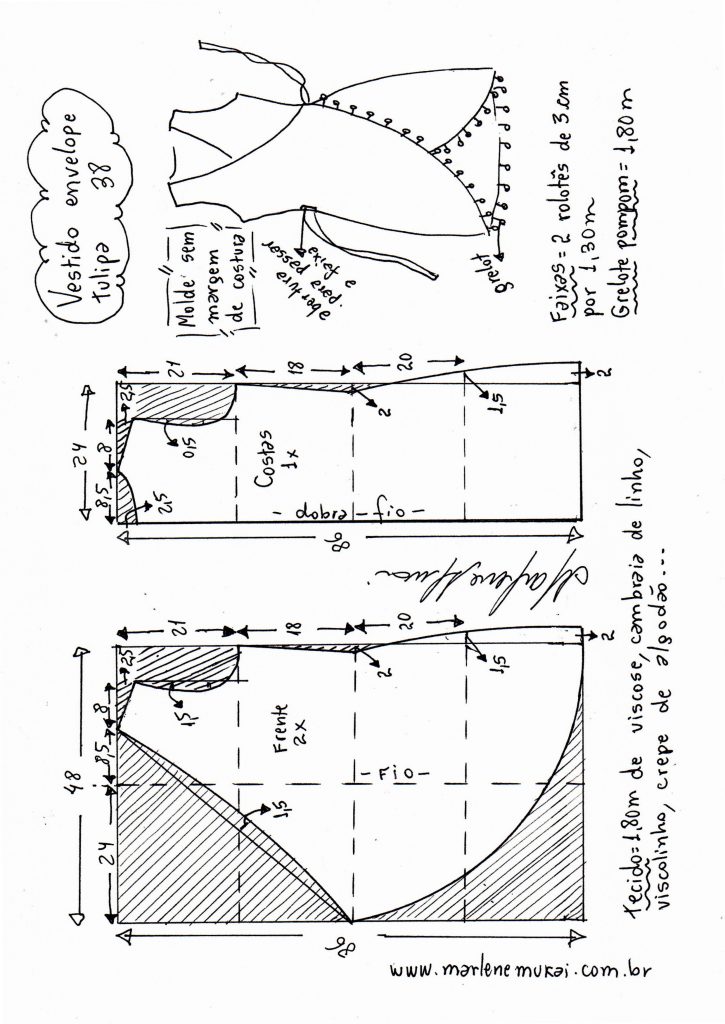 Vestido envelope
tulipa 38
"Molde sem
margem
de costura"
existe a
ressed ered.
grelot
Faixas = 2 rolotês de 3 cm
por 1,30m
Grelote pompom = 1,80m
24
8,5
8
2,5
21
18
20
2,5
0,5
2
1,5
2
Costas
1x
- fio - dobra -
86
Marlene Mukai
48
24
8,5
8
2,5
21
18
20
1,5
2
1,5
2
1,5
Frente
2x
- Fio -
86
tecido = 1,80m de viscose, cambraia de linho,
viscolinho, crepe de algodão...
www.marlenemukai.com.br